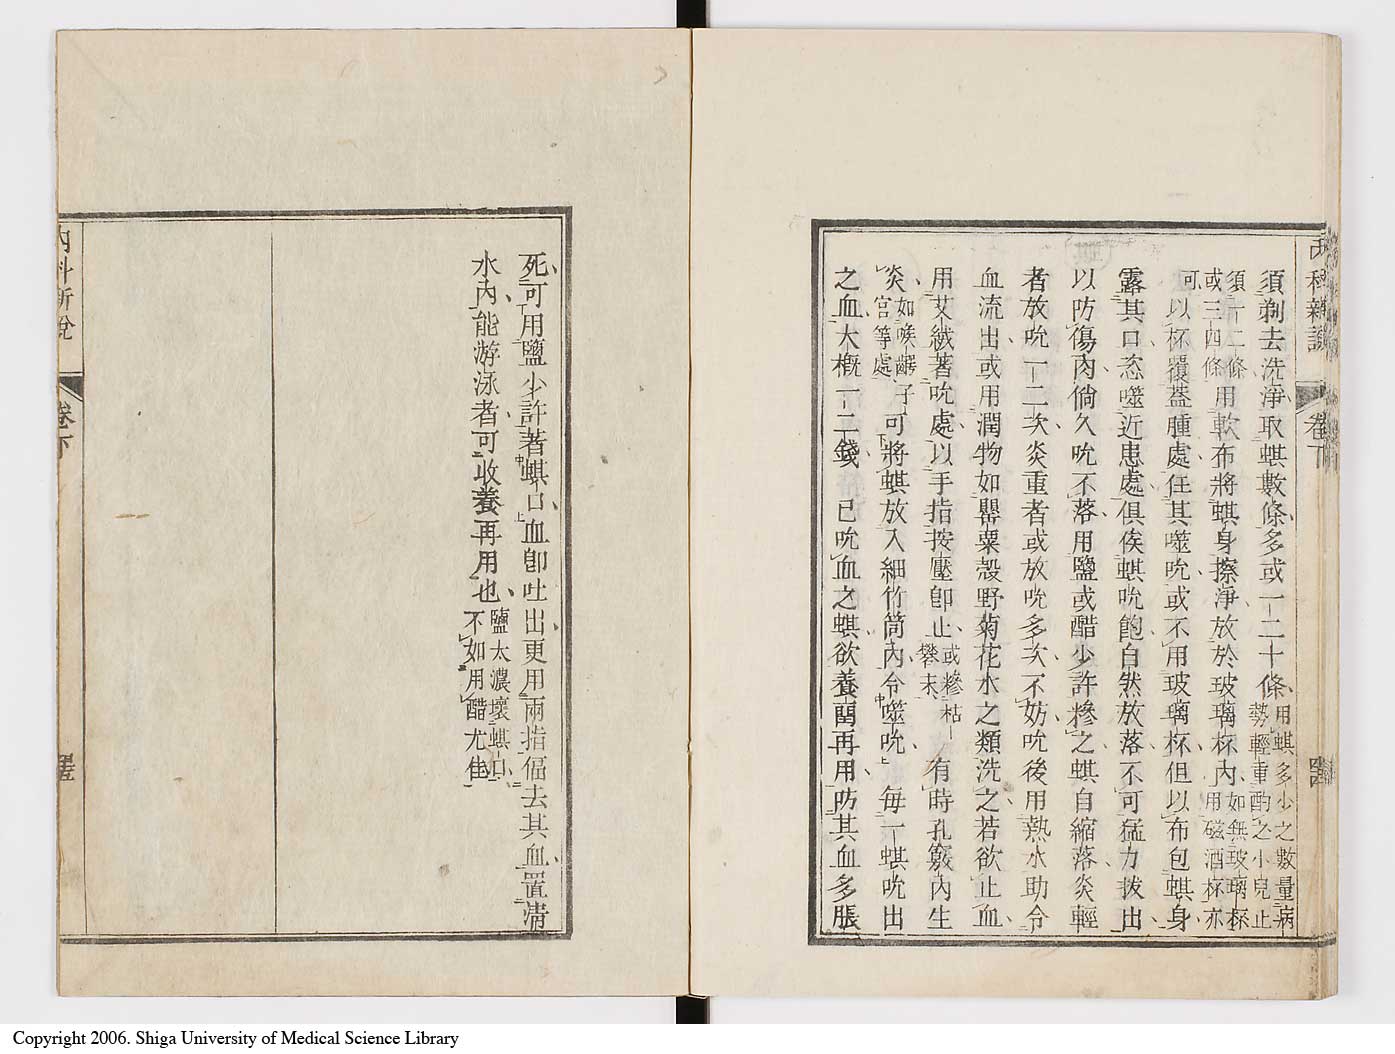 內科新說 卷下
須剃去洗淨取蜞數條多或一二十條用蜞多少之數量病勢輕重酌之小兒止
須一二條或三四條用軟布將蜞身擦淨放於玻璃杯內如無玻璃杯用磁酒杯亦
可以杯覆蓋腫處任其噬吮或不用玻璃杯但以布包蜞身
露其口恣噬近患處俱俟蜞吮飽自然放落不可猛力拔出
以防傷肉倘久吮不落用鹽或醋少許糝之蜞自縮落炎輕
者放吮一二次炎重者或放吮多次不妨吮後用熱水助令
血流出或用潤物如罌粟殼野菊花水之類洗之若欲止血
用艾絨著吮處以手指按壓卽止或糝枯礬末有時孔竅內生
炎如喉齦子宮等處可將蜞放入細竹筒內令噬吮每一蜞吮出
之血大槪一二錢已吮血之蜞欲養閒再用防其血多脹
死可用鹽少許著蜞口血卽吐出更用兩指偪去其血置清
水內能游泳者可收養再用也鹽太濃壞蜞口不如用醋尤佳
內科新說 卷下
Copyright 2006. Shiga University of Medical Science Library